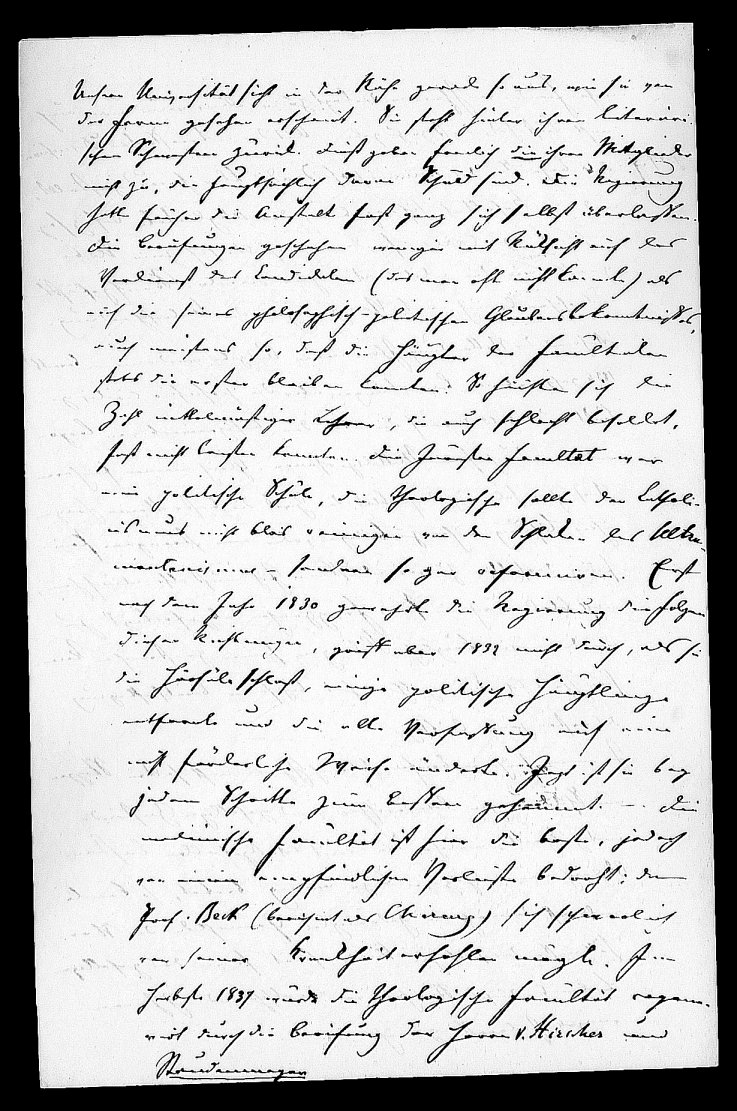 Unsere Universität sieht in der Nähe gerade so aus, wie sie von
der Ferne gesehen erscheint. Sie steht hinter ihren literäri-
schen Schwestern zurück. Dieß geben freilich die ihrer Mitglieder
nicht zu, die hauptsächlich daran Schuld sind. Die Regierung
hatte früher die Anstalt fast ganz sich selbst überlassen.
Die Berufungen geschahen weniger mit Rücksicht auf das
Verdienst des Candidaten (das man oft nicht kannte) als
auf die seines philosophisch-politischen Glaubensbekenntnisses,
auch meistens so, daß die Häupter der Facultäten
stets die ersten bleiben konnten. So häufte sich die
Zahl mittelmäßiger Lehrer, die auch schlecht besoldet,
fast nicht leisten konnten. Die Juristen Facultät war
eine politische Schule, die theologische sollte den Catholi-
cismus nicht blos reinigen von den Schlacken des Ultra-
montanismus – sondern sogar reformiren. Erst
nach dem Jahr 1830 gewahrte die Regierung die Folgen
dieser Richtungen, griff aber 1832 nicht durch, als sie
die Hörsäle schloß, einige politische Häuptlinge
entfernte und die alte Verfassung auf eine
nicht förderliche Weise änderte. Jetzt ist sie bey
jedem Schritte zum Bessern gehemmt. – Die
medicinische Facultät ist hier die beste, jedoch
von einem empfindlichen Verluste bedroht; denn
Prof. Beck (berühmt als Chirurg) sich schwerlich
von seiner Krankheit erholen möchte. Im
Herbste 1837 wurde die theologische Facultät regene-
rirt durch die Berufung der Herren v. Hirscher und
Staudenmayer